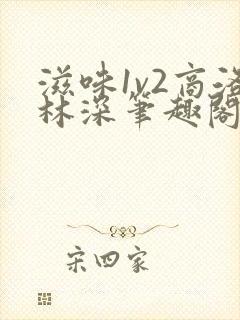 滋味1v2高洛
林深笔趣阁
宋四家